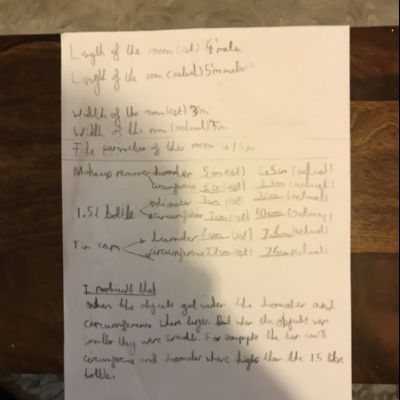 Length of the room (est) 4 metre
Length of the room (actual) 5m meter
Width of the room (est) 3m
Width of the room (actual) 3m
The perimeter of the room is 16m
Makeup remover diameter 5cm (est) (actual)
circumference (est) (actual)
diameter (est) (actual)
1.5l bottle circumference (est) (actual)
Tin can diameter (est) (actual)
circumference 27cm (est) (actual)
I noticed that
when the objects got wider the diameter and
circumference where larger. But when the objects were
smaller they were smaller. For example the tin can's
circumference and diameter where higher than the 1.5 litre
bottle.